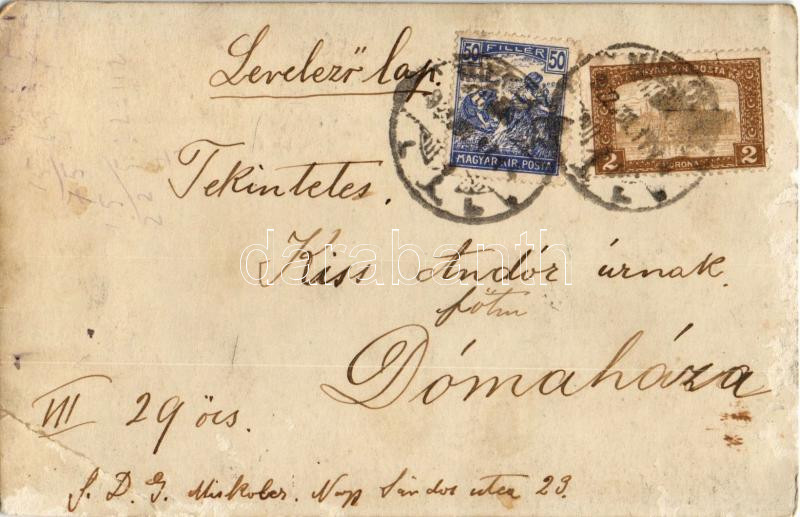 Levelező lap.
50 FILLÉR 50
MAGYAR KIR. POSTA
MAGYAR KIR. POSTA
2 KORONA 2
Tekintetes.
Kiss Andór úrnak.
főtm
Dómaháza
VIII 29 öcs.
S. D. G. Miskolcz. Nagy Sándor utca 23.
darabanth